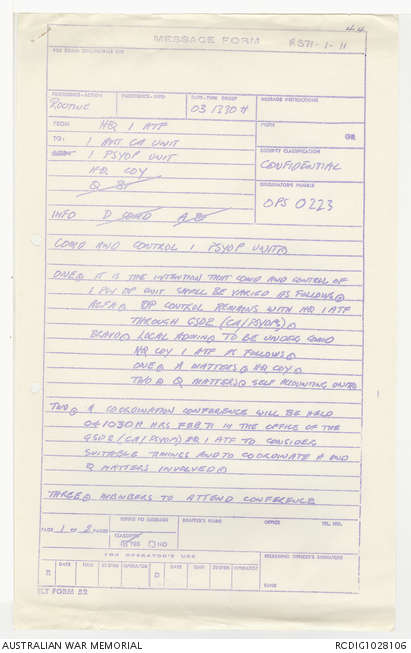 44
MESSAGE FORM
R571-1-11
FOR COMM CEN/SIGNALS USE
PRECEDENCE-ACTION
ROUTINE
PRECEDENCE-INFO
DATE-TIME GROUP
031330H
MESSAGE INSTRUCTIONS
FROM HQ 1 ATF
PREFIX
GR
TO: 1 AUST CA UNIT
1 PSYOP UNIT
HQ COY
Q BR
SECURITY CLASSIFICATION
CONFIDENTIAL
ORIGINATOR'S NUMBER
OPS 0223
INFO D COMD A BR
COMD AND CONTROL 1 PSYOP UNIT
ONE IT IS THE INTENTION THAT COMD AND CONTROL OF
1 PSY OP UNIT SHALL BE VARIED AS FOLLOWS
ALFA OP CONTROL REMAINS WITH HQ 1 ATF
THROUGH GSO2 (CA/PSYOPS)
BRAVO LOCAL ADMIN TO BE UNDER COMD
HQ COY 1 ATF AS FOLLOWS
ONE A MATTERS HQ COY
TWO Q MATTERS SELF ACCOUNTING UNIT
TWO A COORDINATION CONFERENCE WILL BE HELD
041030H HRS FEB 71 IN THE OFFICE OF THE
GSO2 (CA/PSYOPS) HQ 1 ATF TO CONSIDER
SUITABLE TIMINGS AND TO COORDINATE A AND
Q MATTERS INVOLVED
THREE MEMBERS TO ATTEND CONFERENCE
PAGE 1 OF 2 PAGES
REFERS TO MESSAGE
CLASSIFIED
YES NO
DRAFTER'S NAME
OFFICE
TEL NO.
FOR OPERATOR'S USE
R DATE TIME SYSTEM OPERATOR D DATE TIME SYSTEM OPERATOR
RELEASING OFFICER'S SIGNATURE
RANK
AUSTRALIAN WAR MEMORIAL
RCDIG1028106